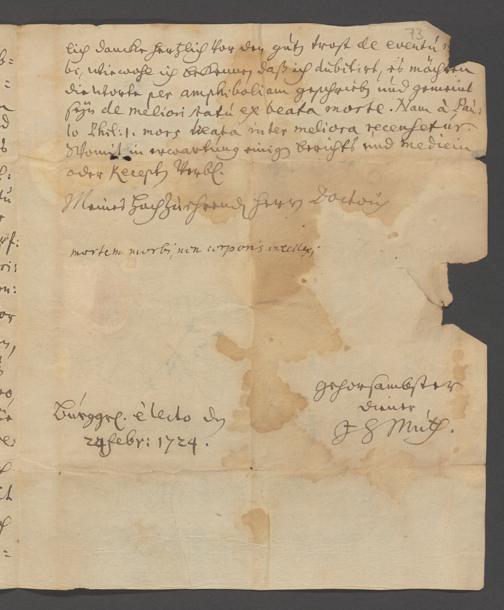 73
lich dancke hertzlich vor den guten trost de eventu
bi, wiewohl ich bekennen daß ich dubitirt, es möchten
die worte per amphiboliam geschrieben und gemeint
seyn de meliori statu ex beata morte. Nam à Pau:
lo Phil: 1. mors beata inter meliora recensetur.
Womit in erwartung einigen berichts und medicin
oder Recepts verbl.
Meines Hochzuehrenden Herrn Doctoris
mortem morbi, non corporis intellexi.
gehorsambster
diener
Muth.
è lecto den
24 febr: 1724.